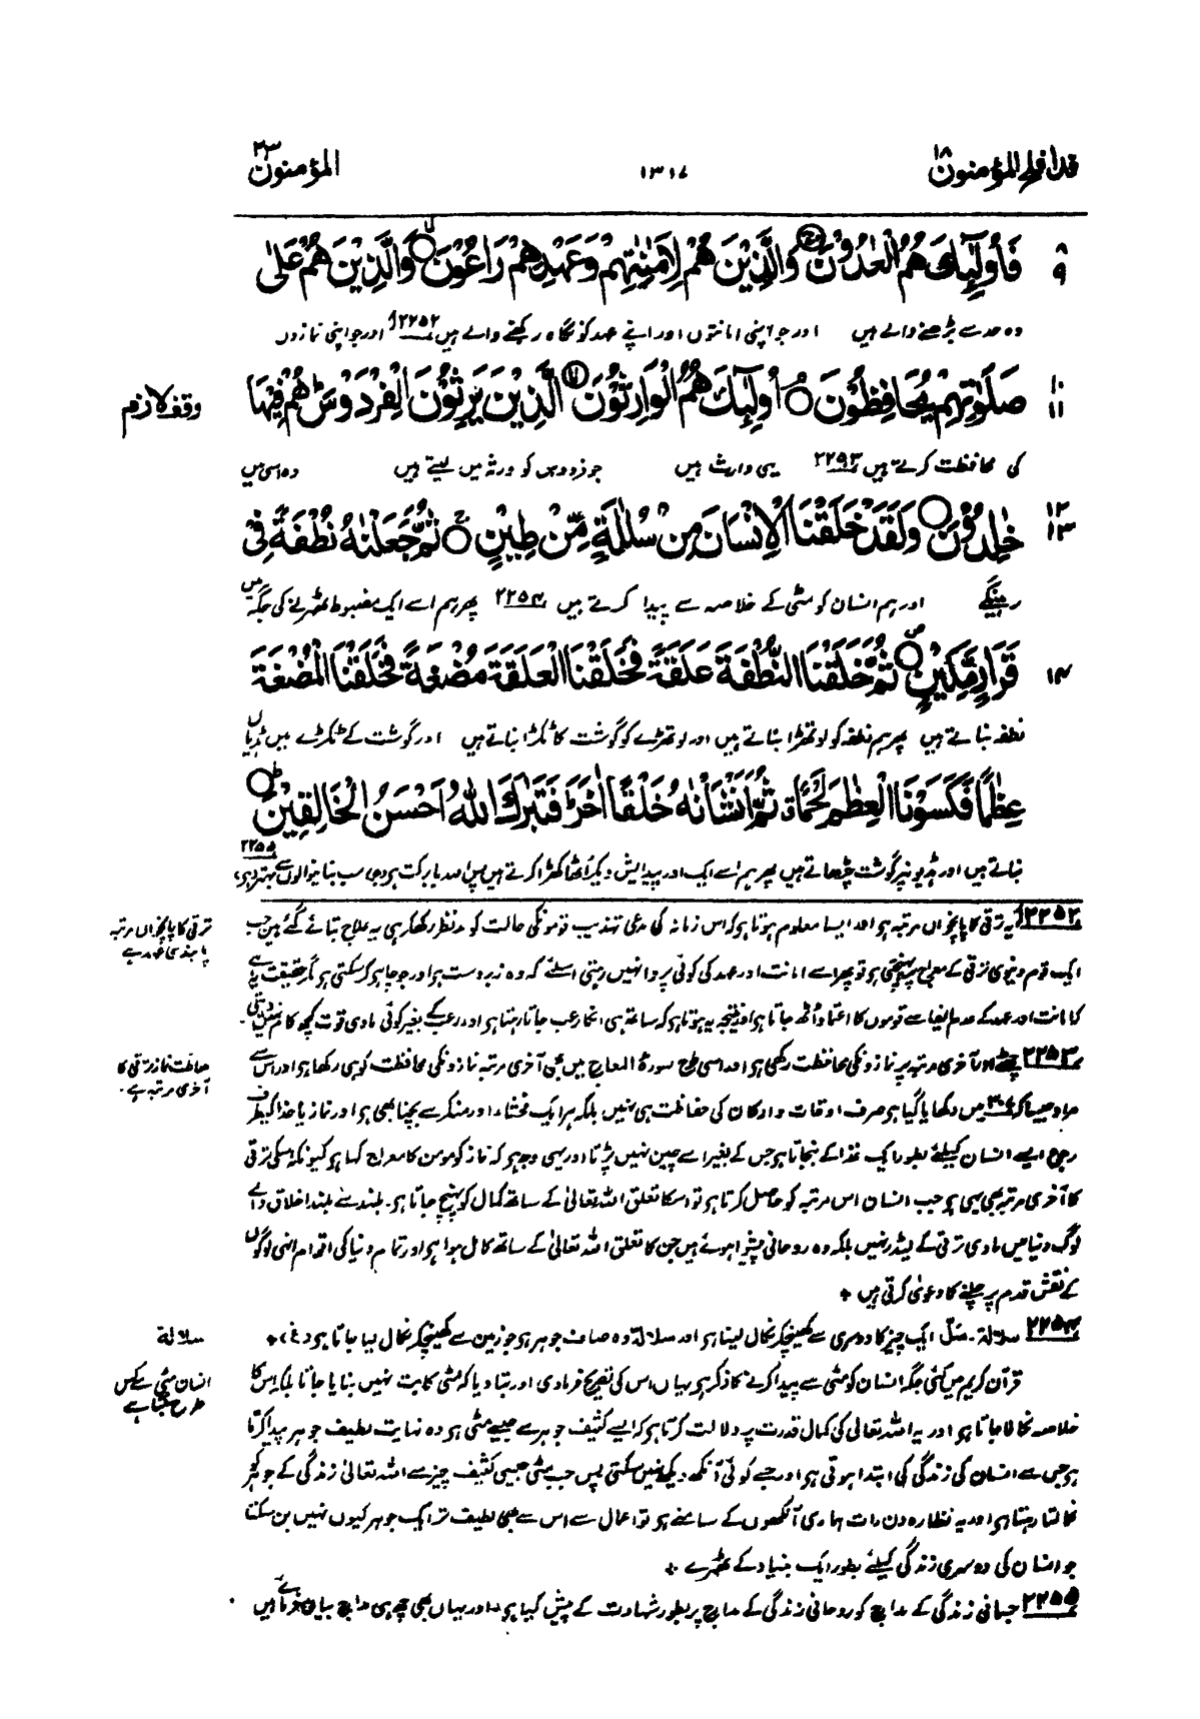 قد افلح المؤمنون ۱۸
۱۳۱۷
المؤمنون ۲۳
فَأُولَٰئِكَ هُمُ الْعَادُونَ ۝ وَالَّذِينَ هُمْ لِأَمَانَاتِهِمْ وَعَهْدِهِمْ رَاعُونَ ۝ وَالَّذِينَ هُمْ عَلَىٰ
وہ حد سے بڑھنے والے ہیں اور جو اپنی امانتوں اور اپنے عہد کو نگاہ رکھنے والے ہیں ۲۲۵۲ اور جو اپنی نمازوں
صَلَوَاتِهِمْ يُحَافِظُونَ ۝ أُولَٰئِكَ هُمُ الْوَارِثُونَ ۝ الَّذِينَ يَرِثُونَ الْفِرْدَوْسَ هُمْ فِيهَا
وقف لازم
کی محافظت کرتے ہیں ۲۲۵۳ یہی وارث ہیں جو فردوس کو ورثہ میں لیتے ہیں وہ اسی میں
خَالِدُونَ ۝ وَلَقَدْ خَلَقْنَا الْإِنْسَانَ مِنْ سُلَالَةٍ مِنْ طِينٍ ۝ ثُمَّ جَعَلْنَاهُ نُطْفَةً فِي
رہینگے اور ہم انسان کو مٹی کے خلاصہ سے پیدا کرتے ہیں ۲۲۵۴ پھر ہم اسے ایک مضبوط ٹھہرنے کی جگہ میں
قَرَارٍ مَكِينٍ ۝ ثُمَّ خَلَقْنَا النُّطْفَةَ عَلَقَةً فَخَلَقْنَا الْعَلَقَةَ مُضْغَةً فَخَلَقْنَا الْمُضْغَةَ
نطفہ بناتے ہیں پھر ہم نطفہ کو لوتھڑا بناتے ہیں اور لوتھڑے کو گوشت کا ٹکڑا بناتے ہیں اور گوشت کے ٹکڑے میں ہڈیاں
عِظَامًا فَكَسَوْنَا الْعِظَامَ لَحْمًا ثُمَّ أَنْشَأْنَاهُ خَلْقًا آخَرَ فَتَبَارَكَ اللَّهُ أَحْسَنُ الْخَالِقِينَ ۝
بناتے ہیں اور ہڈیوں پر گوشت چڑھاتے ہیں پھر ہم اسے ایک اور پیدایش دیکر اُٹھا کھڑا کرتے ہیں پس اللہ بابرکت ہے جو سب بنانیوالوں سے بہتر ہے ۲۲۵۵
۲۲۵۲ یہ ترقی کا پانچواں مرتبہ ہے اور ایسا معلوم ہوتا ہے کہ اس زمانہ کی مدعی تہذیب قوموں کی حالت کو مدنظر رکھ کر ہی یہ علاج بتائے گئے ہیں جب
ترقی کا پانچواں مرتبہ
پابندی عہد ہے
ایک قوم دنیوی ترقی کے معراج پر پہنچتی ہے تو پھر اسے امانت اور عہد کی کوئی پروا نہیں رہتی اسلئے کہ وہ زبردست ہے اور جو چاہے کر سکتی ہے مگر حقیقت یہ ہے
کہ امانت اور عہد کے عدم ایفا سے قوموں کا اعتماد اُٹھ جاتا ہے اور نتیجہ یہ ہوتا ہے کہ ساتھ ہی انکا رعب جاتا رہتا ہے اور رعب کے بغیر کوئی مادی قوت کچھ کام نہیں دیتی۔
۲۲۵۳ چھٹے اور آخری مرتبہ پر نمازونکی محافظت رکھی ہے اور اسی طرح سورۃ المعارج میں بھی آخری مرتبہ نمازونکی محافظت کو ہی رکھا ہے اور اس سے
محافظت نماز ترقی کا
آخری مرتبہ ہے۔
مراد جیسا کہ میں دکھایا گیا ہے صرف اوقات و ارکان کی حفاظت ہی نہیں بلکہ ہر ایک فحشاء اور منکر سے بچنا بھی ہے اور نماز یا خدا کیطرف
رجوع ایسے انسان کیلئے بطور ایک غذا کے بنجاتا ہے جس کے بغیر اسے چین نہیں پڑتا اور یہی وجہ ہے کہ نماز کو مومن کا معراج کہا ہے کیونکہ اسکی ترقی
کا آخری مرتبہ بھی یہی ہے جب انسان اس مرتبہ کو حاصل کرتا ہے تو اسکا تعلق اللہ تعالیٰ کے ساتھ کمال کو پہنچ جاتا ہے۔ بلند سے بلند اخلاق والے
لوگ دنیا میں مادی ترقی کے لیڈر نہیں بلکہ وہ روحانی پیشوا ہوئے ہیں جن کا تعلق اللہ تعالیٰ کے ساتھ کامل ہوا ہے اور تمام دنیا کی اقوام انہی لوگوں
کے نقش قدم پر چلنے کا دعویٰ کرتی ہیں +
۲۲۵۴ سلالۃ۔ سَلّ ایک چیز کا دوسری سے کھینچکر نکال لینا ہے اور سلالۃ وہ صاف جوہر ہے جو زمین سے کھینچکر نکال لیا جاتا ہے (غ) +
سلالة
قرآن کریم میں کئی جگہ انسان کو مٹی سے پیدا کرنے کا ذکر ہے یہاں اس کی تصریح فرمادی اور بتا دیا کہ مٹی کا بت نہیں بنایا جاتا بلکہ اس کا
انسان مٹی سے کس
طرح بنتا ہے
خلاصہ نکالا جاتا ہے اور یہ اللہ تعالیٰ کی کمال قدرت پر دلالت کرتا ہے کہ ایسے کثیف جوہر سے جیسے مٹی ہے وہ نہایت لطیف جوہر پیدا کرتا
ہے جس سے انسان کی زندگی کی ابتدا ہوتی ہے اور جسے کوئی آنکھ دیکھ نہیں سکتی پس جب مٹی جیسی کثیف چیز سے اللہ تعالیٰ زندگی کے جوہر
نکالتا رہتا ہے اور یہ نظارہ دن رات ہماری آنکھوں کے سامنے ہے تو اعمال سے اس سے بھی لطیف تر ایک جوہر کیوں نہیں بن سکتا
جو انسان کی دوسری زندگی کیلئے بطور ایک بنیاد کے ٹھہرے +
۲۲۵۵ جسمانی زندگی کے مدارج کو روحانی زندگی کے مدارج پر بطور شہادت کے پیش کیا ہے اور یہاں بھی چھ ہی مدارج بیان فرمائے ہیں